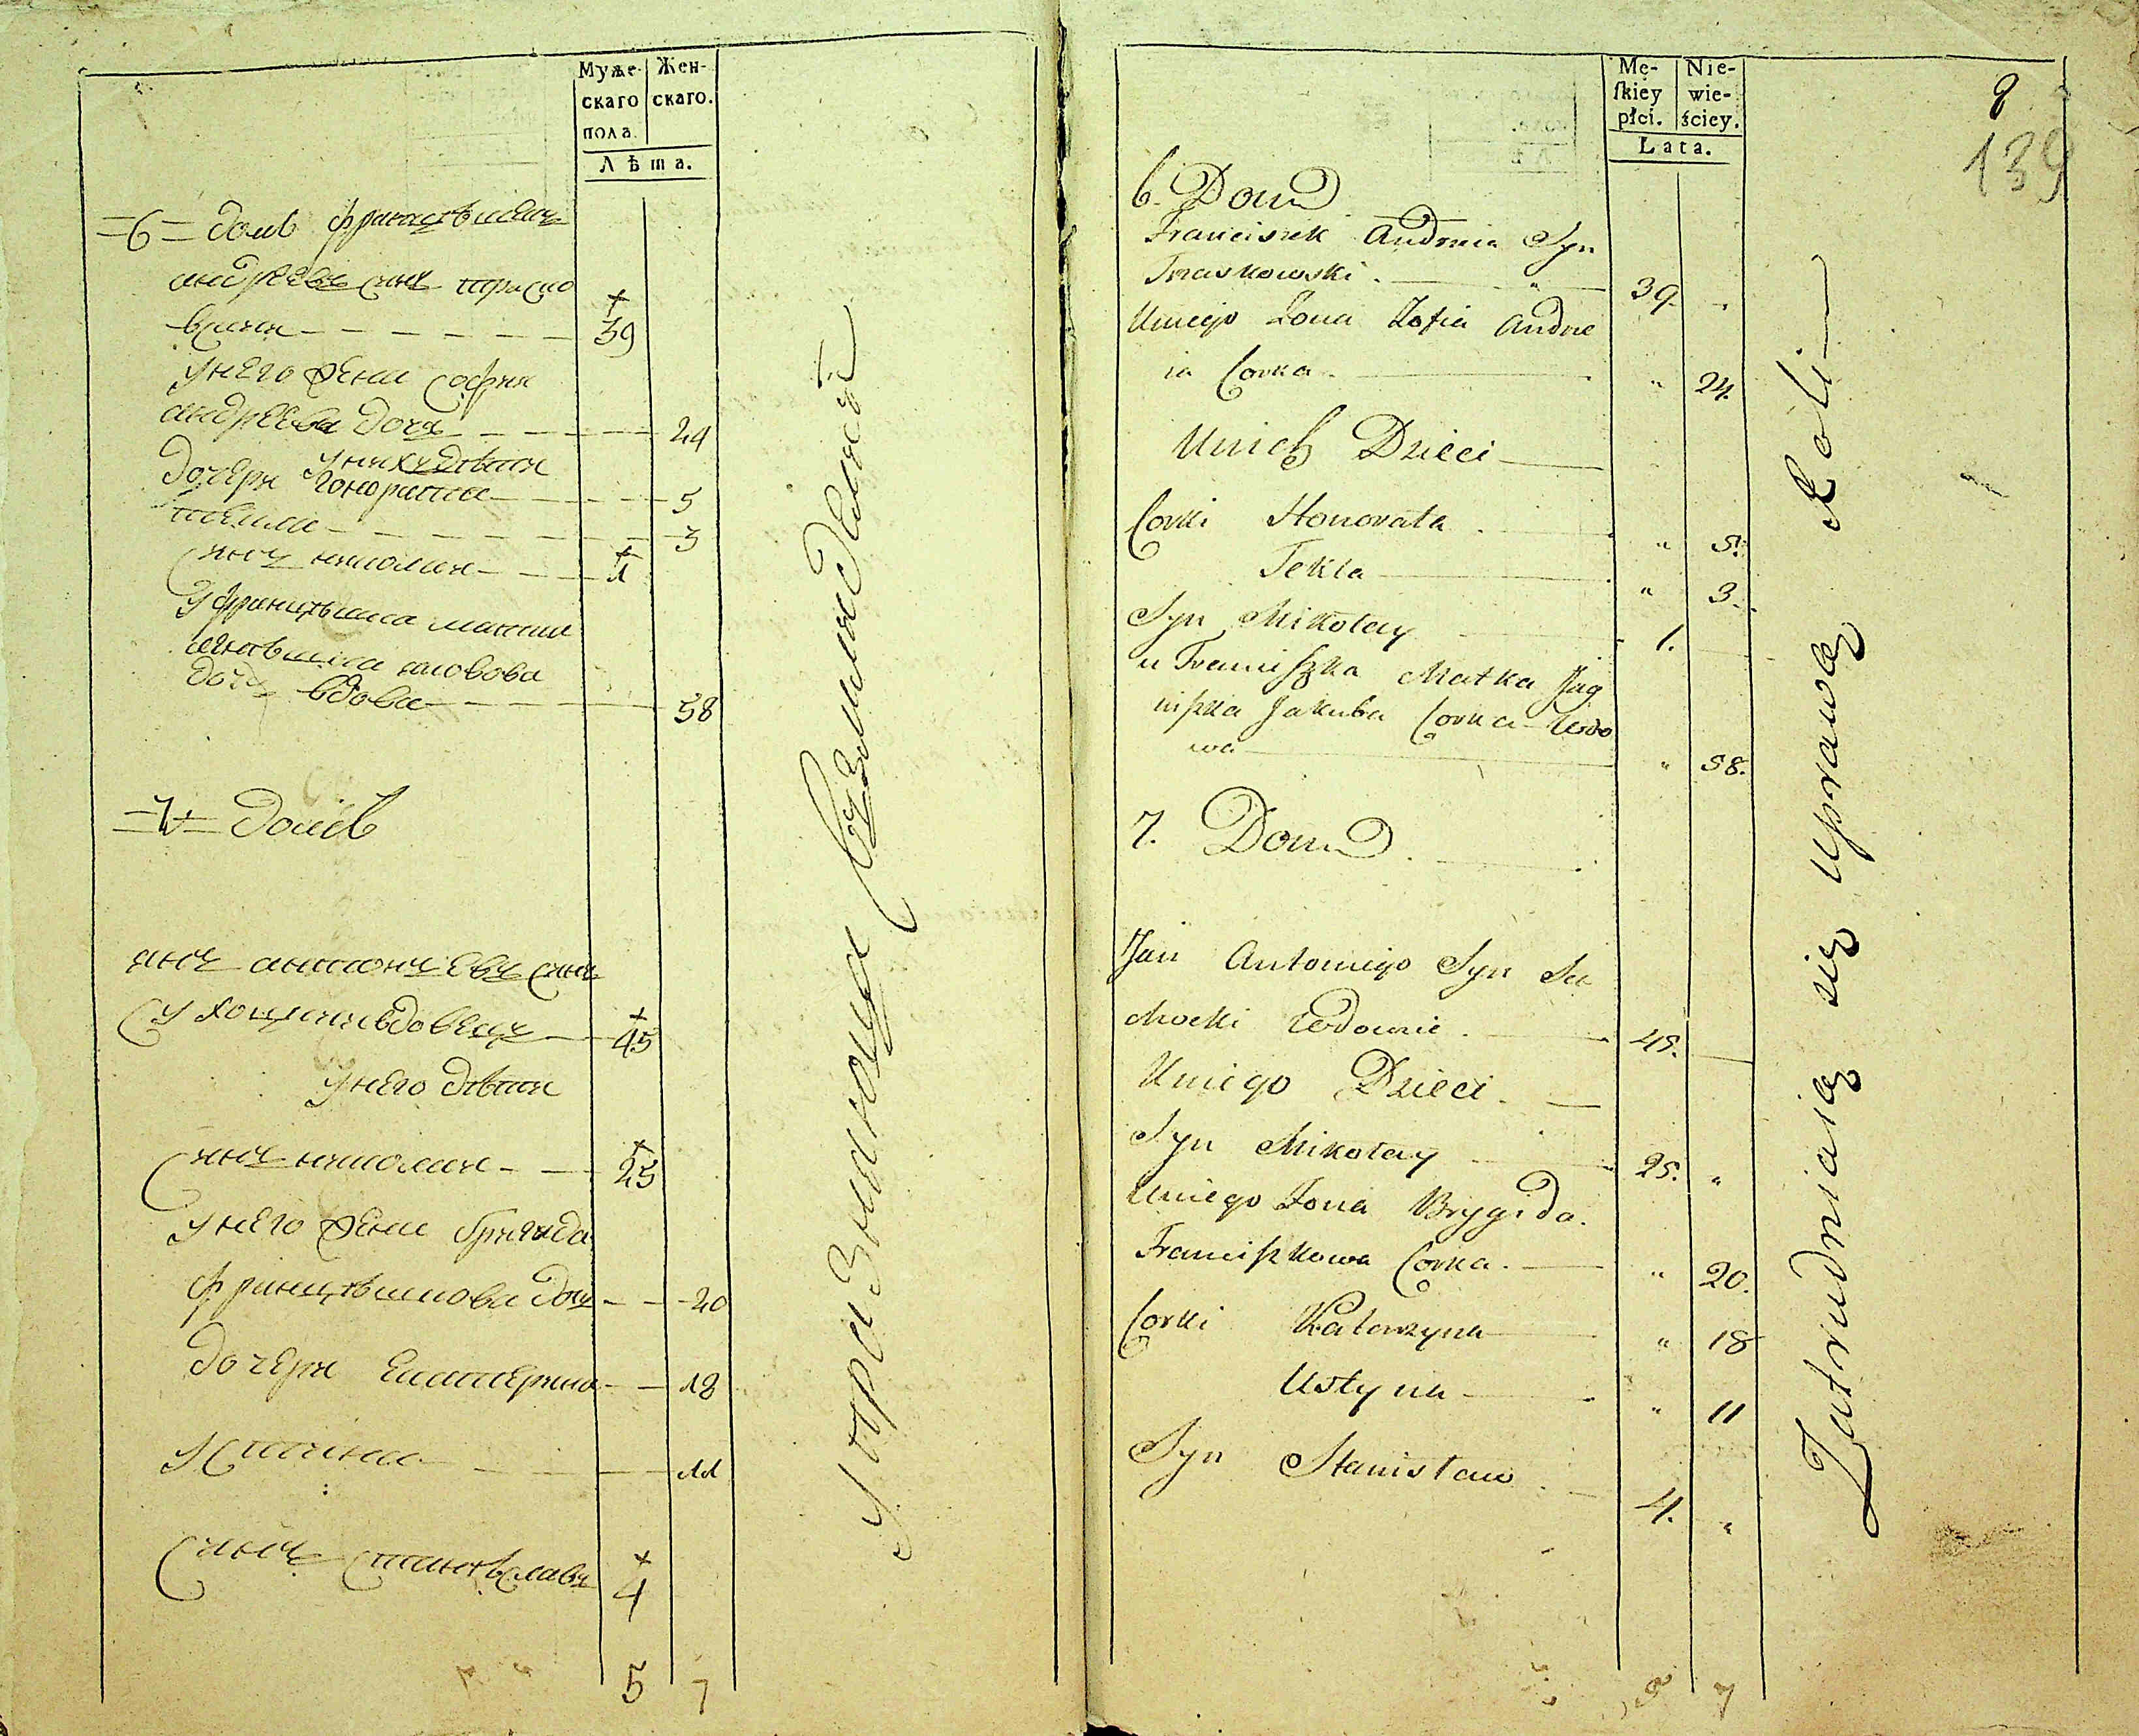 Муже-
скаго
пола.
Жен-
скаго.
Лѣта.
=6= домъ францѣшекъ
андреевъ сынъ
39
у него жена софия
андреева дочь 24
у них дѣти
дочери гонората 5
текля 3
сынъ николай 1
У францѣшка матка
вдова
дочь вдова 58
=7= домъ
янъ антоніевъ сынъ
сухоцки вдовецъ 45
у него дѣти
сынъ николай 25
у него жена бригида
францѣшкова дочь 20
дочери екатерина 18
устина 11
сынъ станѣславъ 4
5 7
Mę-
ſkiey
płci.
Nie-
wie-
ściey.
Lata.
8
139
6. Dom
Franciszek Andrzeia Syn
Traskowski 39. "
Uniego Zona Zofia Andrze
ia Corka " 24.
Unich Dzieci
Corki Honorata " 5.
Tekla " 3.
Syn Mikołay 1.
u Franciszka Matka Jag
niszka Jakuba Corka Wdo
wa " 58.
7. Dom
Jan Antoniego Syn Su
chocki Wdowiec 45.
Uniego Dzieci
Syn Mikołay 25. "
Uniego Zona Brygida
Franciszkowa Corka " 20.
Corki Katarzyna " 18
Ustyna " 11
Syn Stanisław 4. "
7
Zatrudniaią się uprawą Roli